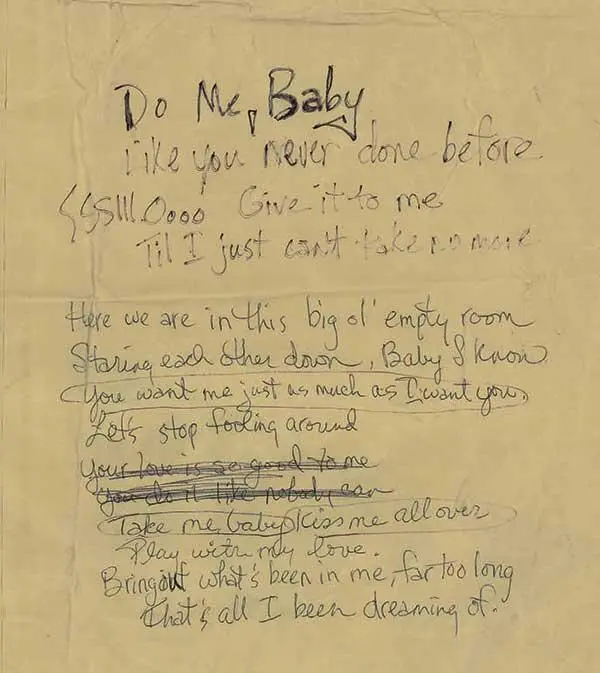 Do Me, Baby
like you never done before
SSSIII.Oooo Give it to me
Til I just can't take no more
Here we are in this big ol' empty room
Staring each other down, Baby I know
You want me just as much as I want you,
Let's stop fooling around
Your love is so good to me
You do it like nobody can
Take me, baby Kiss me all over
Play with my love.
Bring out what's been in me, far too long
that's all I been dreaming of.